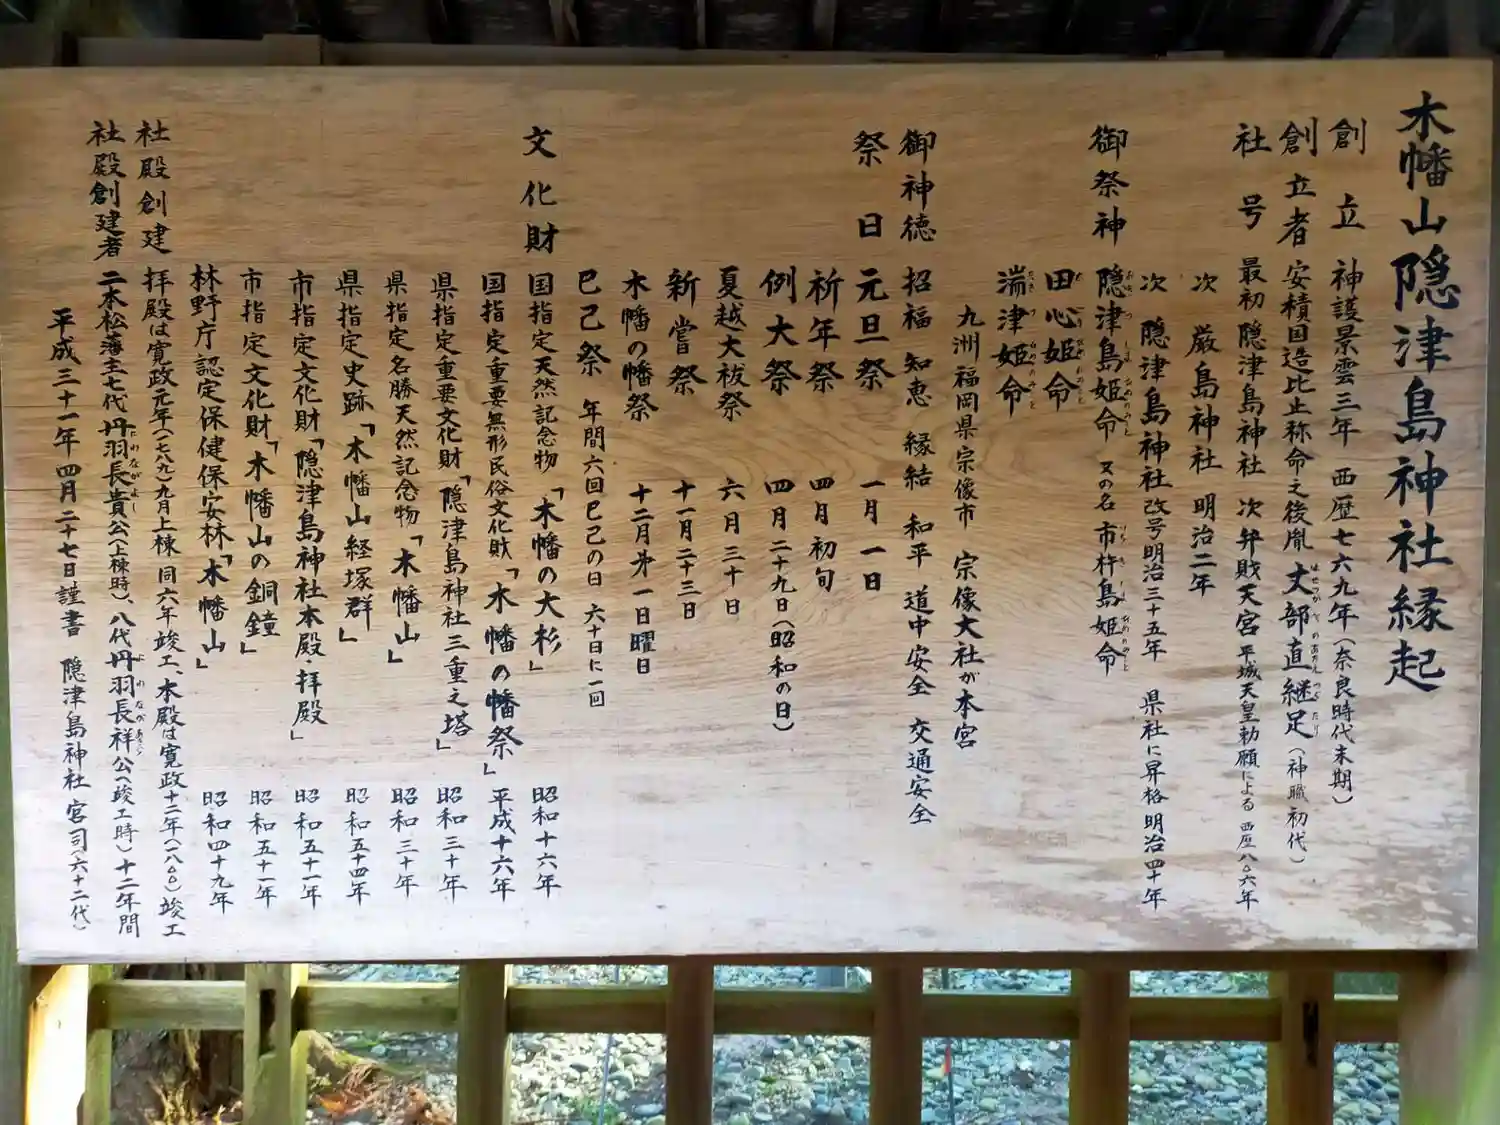 木幡山隠津島神社縁起
創立 神護景雲三年 西歴七六九年(奈良時代末期)
創立者 安積国造比止祢命之後胤 丈部直継足(神職初代)
社号 最初 隠津島神社 次 弁財天宮 平城天皇勅願による 西歴八〇六年
次 厳島神社 明治二年
次 隠津島神社 改号明治三十五年 県社に昇格明治四十年
御祭神 隠津島姫命 又の名 市杵島姫命
田心姫命
湍津姫命
九州福岡県宗像市 宗像大社が本宮
御神徳 招福 知恵 縁結 和平 道中安全 交通安全
祭日 元旦祭 一月一日
祈年祭 四月初旬
例大祭 四月二十九日(昭和の日)
夏越大祓祭 六月三十日
新嘗祭 十一月二十三日
木幡の幡祭 十二月第一日曜日
巳己祭 年間六回巳己の日 六十日に一回
文化財 国指定天然記念物「木幡の大杉」 昭和十六年
国指定重要無形民俗文化財「木幡の幡祭」 平成十六年
県指定重要文化財「隠津島神社三重之塔」 昭和三十年
県指定名勝天然記念物「木幡山」 昭和三十年
県指定史跡「木幡山経塚群」 昭和五十四年
市指定文化財「隠津島神社本殿・拝殿」 昭和五十一年
市指定文化財「木幡山の銅鐘」 昭和五十一年
林野庁認定保健保安林「木幡山」 昭和四十九年
社殿創建 拝殿は寛政元年(一七八九)九月上棟 同六年竣工、本殿は寛政十二年(一八〇〇)竣工
社殿創建者 二本松藩主七代丹羽長貴公(上棟時)、八代丹羽長祥公(竣工時)十二年間
平成三十一年四月二十七日謹書 隠津島神社宮司(六十二代)